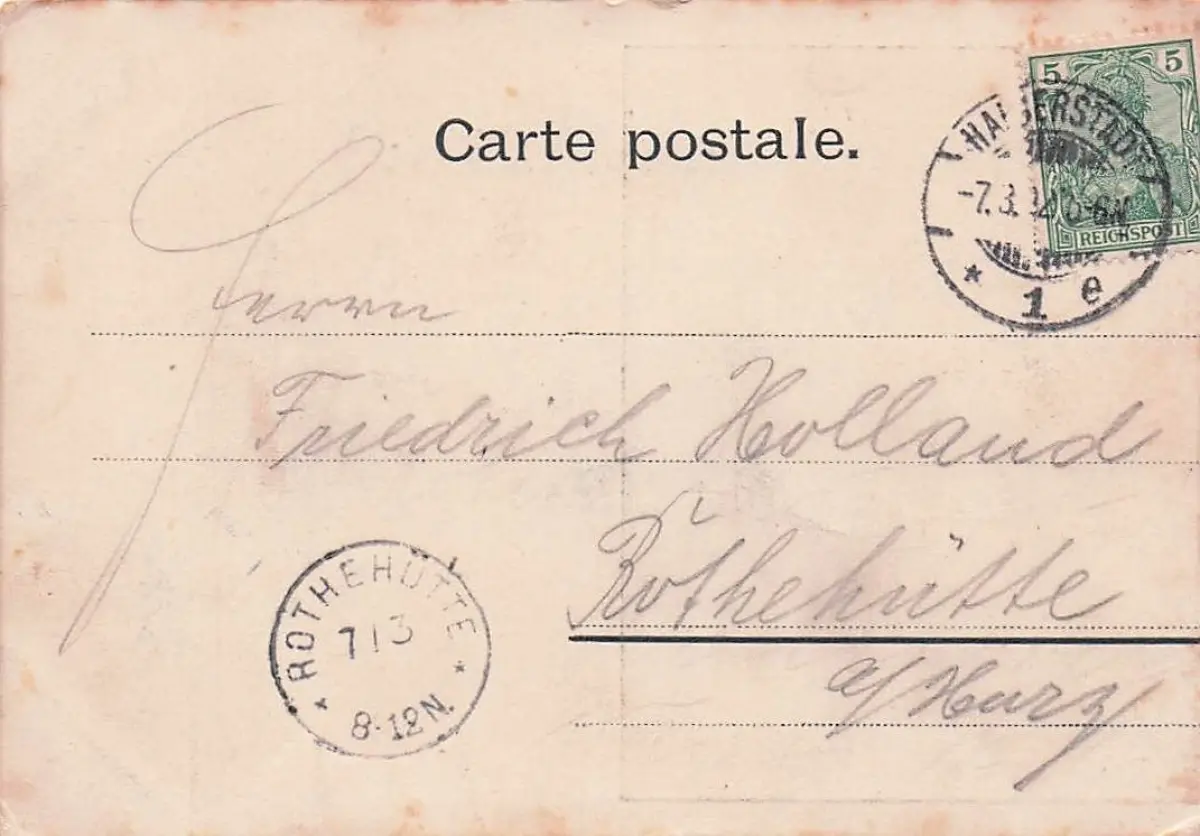 Carte postale.
5 5
REICHSPOST
HALBERSTADT
-7.3. 5-6N
* 1 e
Herrn
Friedrich Holland
Rothehütte
a/Harz
* ROTHEHÜTTE *
7 | 3
8-12N.